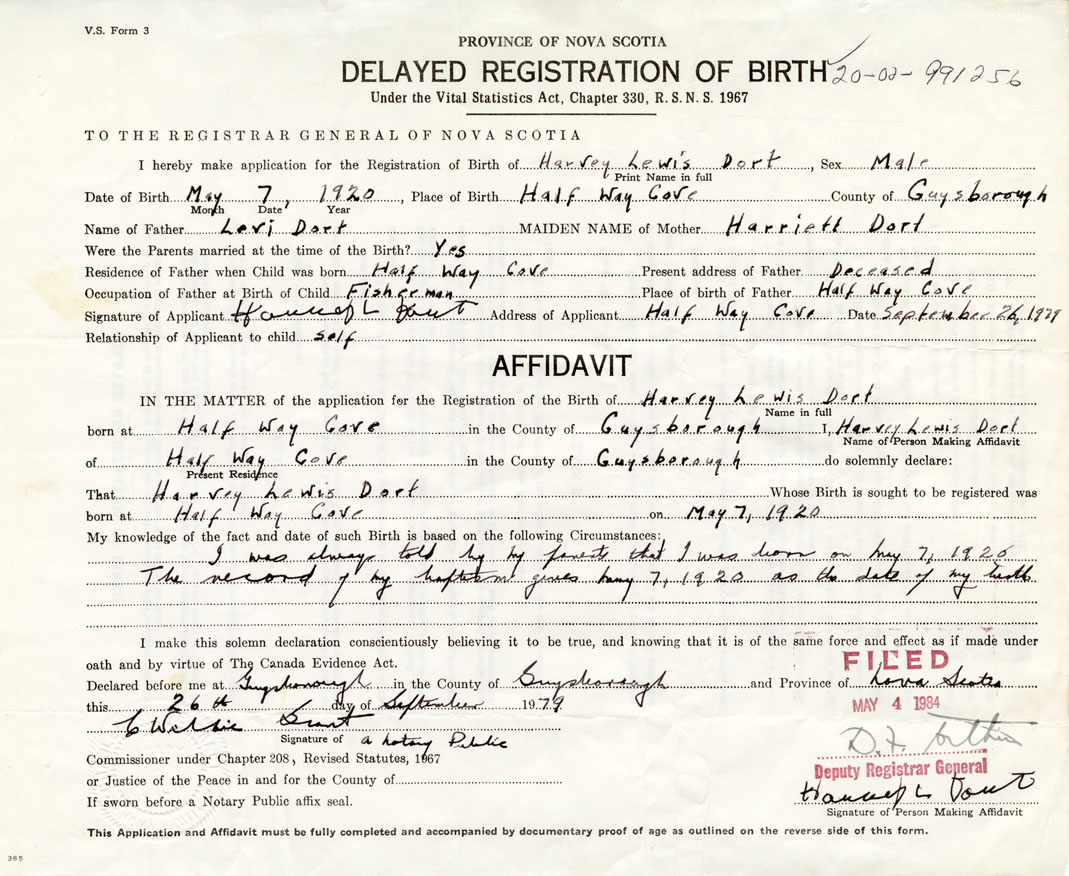 V.S. Form 3
PROVINCE OF NOVA SCOTIA
DELAYED REGISTRATION OF BIRTH 20-02-991256
Under the Vital Statistics Act, Chapter 330, R.S.N.S. 1967
TO THE REGISTRAR GENERAL OF NOVA SCOTIA
I hereby make application for the Registration of Birth of Harvey Lewis Dort, Sex Male
Print Name in full
Date of Birth May 7, 1920, Place of Birth Half Way Cove County of Guysborough
Month Date Year
Name of Father Levi Dort MAIDEN NAME of Mother Harriett Dort
Were the Parents married at the time of the Birth? Yes
Residence of Father when Child was born Half Way Cove Present address of Father Deceased
Occupation of Father at Birth of Child Fisherman Place of birth of Father Half Way Cove
Signature of Applicant Address of Applicant Half Way Cove Date September 26, 1979
Relationship of Applicant to child self
AFFIDAVIT
IN THE MATTER of the application for the Registration of the Birth of Harvey Lewis Dort
Name in full
born at Half Way Cove in the County of Guysborough I, Harvey Lewis Dort
Name of Person Making Affidavit
of Half Way Cove in the County of Guysborough do solemnly declare:
Present Residence
That Harvey Lewis Dort Whose Birth is sought to be registered was
born at Half Way Cove on May 7, 1920
My knowledge of the fact and date of such Birth is based on the following Circumstances:
I was always told by my parents that I was born on May 7, 1920
The record of my baptism gives May 7, 1920 as the date of my birth.
I make this solemn declaration conscientiously believing it to be true, and knowing that it is of the same force and effect as if made under
oath and by virtue of The Canada Evidence Act.
FILED
Declared before me at Guysborough in the County of Guysborough and Province of Nova Scotia
this 26th day of September 1979
MAY 4 1984
Grant
Signature of a Notary Public
D.F.
Commissioner under Chapter 208, Revised Statutes, 1967
Deputy Registrar General
or Justice of the Peace in and for the County of
If sworn before a Notary Public affix seal.
Signature of Person Making Affidavit
This Application and Affidavit must be fully completed and accompanied by documentary proof of age as outlined on the reverse side of this form.
385